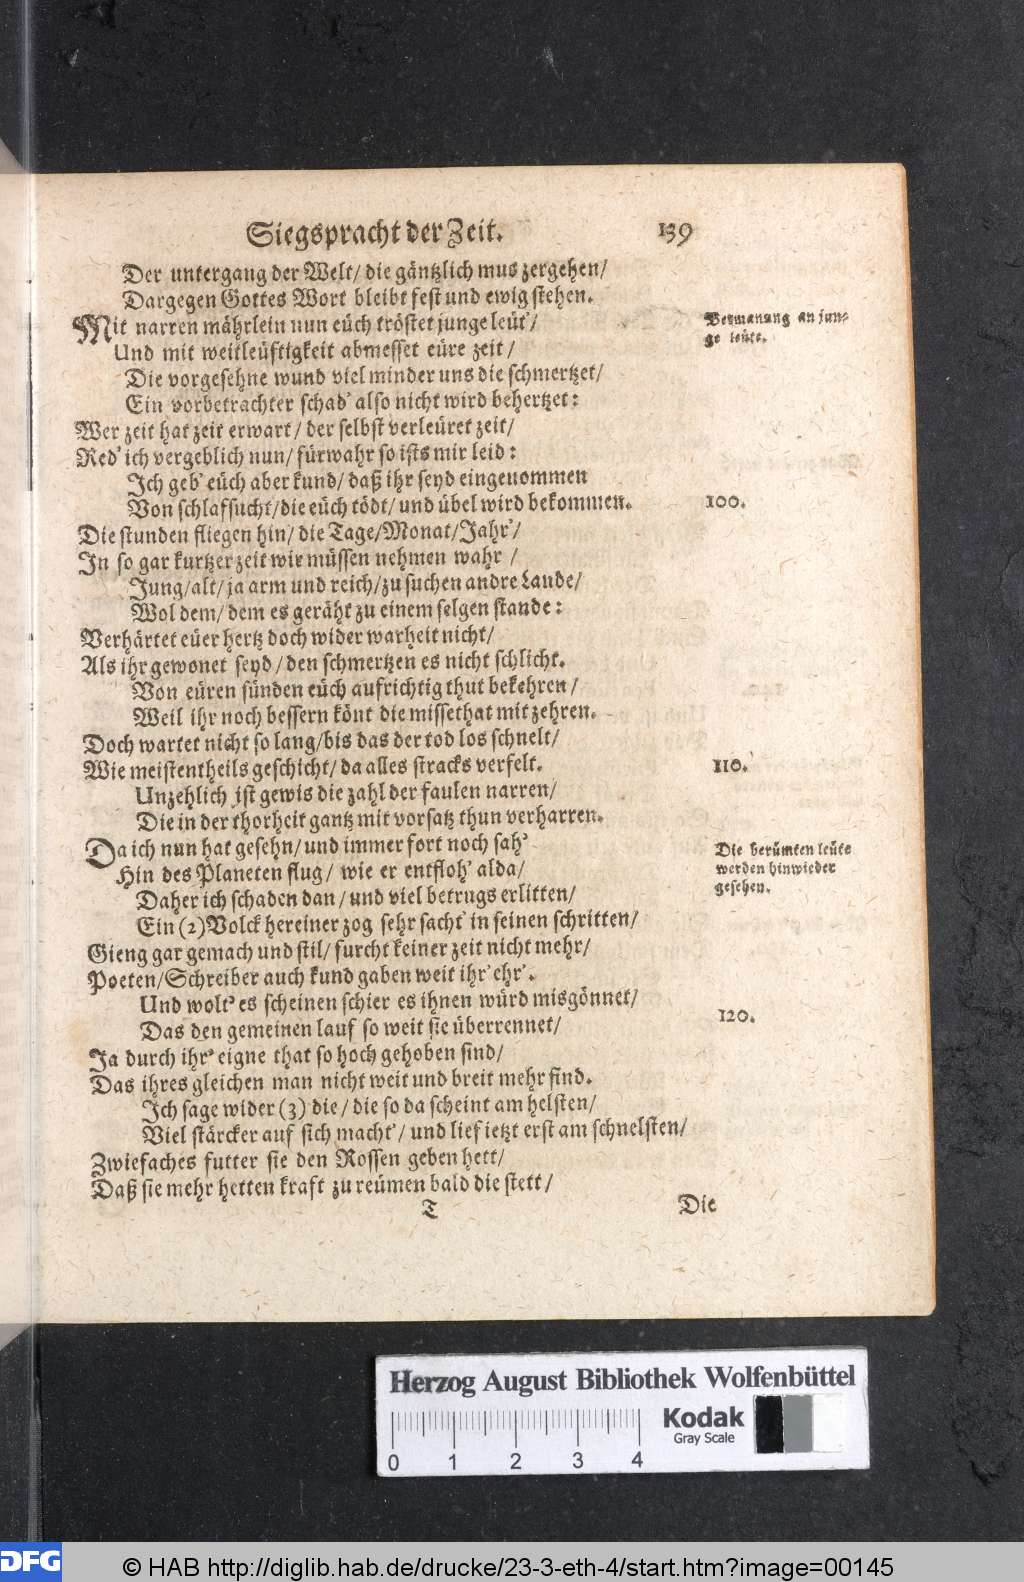 Siegspracht der Zeit. 139
Der untergang der Welt/ die gäntzlich mus zergehen/
Dargegen Gottes Wort bleibt fest und ewig stehen.
Mit narren mährlein nun eüch tröstet junge leüt'/
Und mit weitleüftigkeit abmesset eüre zeit/
Die vorgesehne wund viel minder uns die schmertzet/
Ein vorbetrachter schad' also nicht wird behertzet:
Wer zeit hat zeit erwart/ der selbst verleüret zeit/
Red' ich vergeblich nun/ fürwahr so ists mir leid:
Ich geb' eüch aber kund/ daß ihr seyd eingenommen
Von schlafsucht/die eüch tödt/ und übel wird bekommen.
Die stunden fliegen hin/ die Tage/Monat/Jahr'/
In so gar kurtzer zeit wir müssen nehmen wahr/
Jung/alt/ ja arm und reich/zu suchen andre Lande/
Wol dem/ dem es geräht zu einem selgen stande:
Verhärtet eüer hertz doch wider warheit nicht/
Als ihr gewonet seyd/ den schmertzen es nicht schlicht.
Von eüren sünden eüch aufrichtig thut bekehren/
Weil ihr noch bessern könt die missethat mit zehren.
Doch wartet nicht so lang/bis das der tod los schnelt/
Wie meistentheils geschicht/ da alles stracks verfelt.
Unzehlich ist gewis die zahl der faulen narren/
Die in der thorheit gantz mit vorsatz thun verharren.
Da ich nun hat gesehn/ und immer fort noch sah'
Hin des Planeten flug/ wie er entfloh' alda/
Daher ich schaden dan/ und viel betrugs erlitten/
Ein (2) Volck hereiner zog sehr sacht' in seinen schritten/
Gieng gar gemach und stil/ furcht keiner zeit nicht mehr/
Poeten/Schreiber auch kund gaben weit ihr' ehr'.
Und wolt' es scheinen schier es ihnen würd misgönnet/
Das den gemeinen lauf so weit sie überrennet/
Ja durch ihr' eigne that so hoch gehoben sind/
Das ihres gleichen man nicht weit und breit mehr find.
Ich sage wider (3) die/ die so da scheint am helsten/
Viel stärcker auf sich macht'/ und lief ietzt erst am schnelsten/
Zwiefaches futter sie den Rossen geben hett/
Daß sie mehr hetten kraft zu reümen bald die stett/
T Die
Vermanung an jun-
ge leüte.
100.
110.
Die berümten leüte
werden hinwieder
gesehen.
120.
Herzog August Bibliothek Wolfenbüttel
Kodak
Gray Scale
0 1 2 3 4
DFG
© HAB http://diglib.hab.de/drucke/23-3-eth-4/start.htm?image=00145